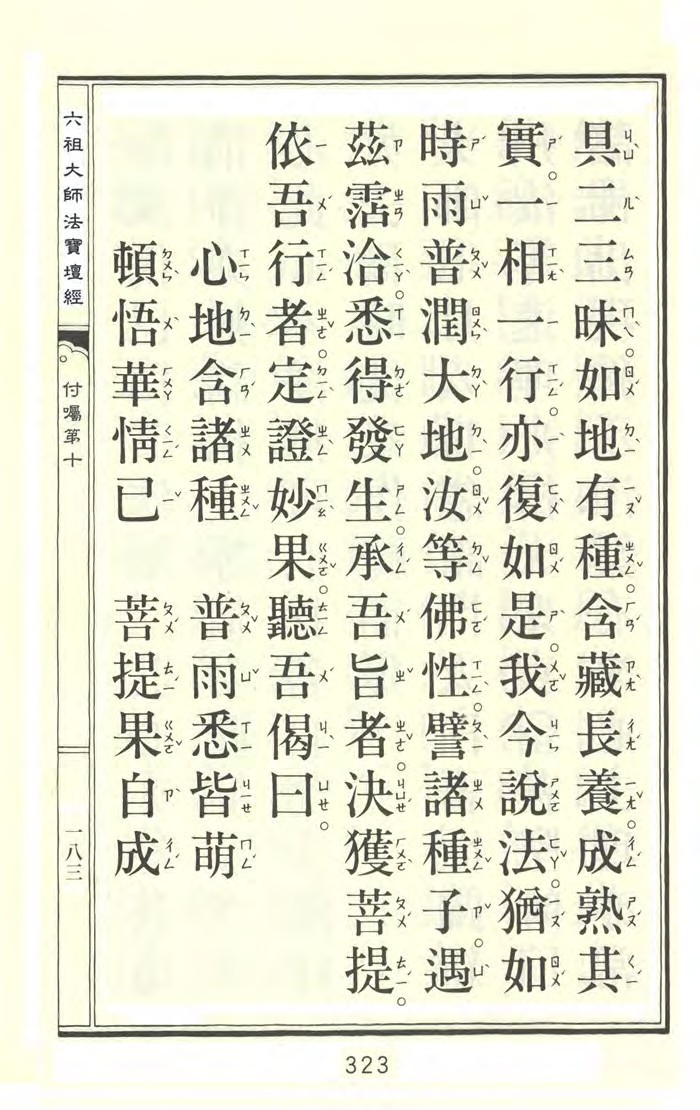 具二三昧。如地有種。含藏長養。成熟其
實。一相一行。亦復如是。我今說法。猶如
時雨。普潤大地。汝等佛性。譬諸種子。遇
茲霑洽。悉得發生。承吾旨者。決獲菩提。
依吾行者。定證妙果。聽吾偈曰。
心地含諸種 普雨悉皆萌
頓悟華情已 菩提果自成
六祖大師法寶壇經
付囑第十
一八三
323